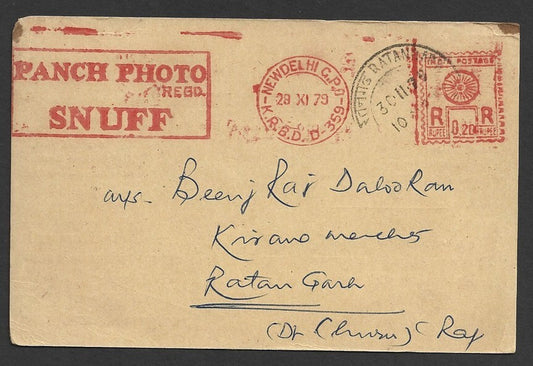 PANCH PHOTO
REGD.
SNUFF
NEW DELHI G.P.O.
29 XI 79
K.R.B.D. D-359
RATAN
30 11 79
10
INDIA POSTAGE
R R
RUPEE 0.20 RUPEE
M/s. Beenj Raj Daloo Ram
Kirano merchts
Ratan Garh
(Dt Churu) Raj